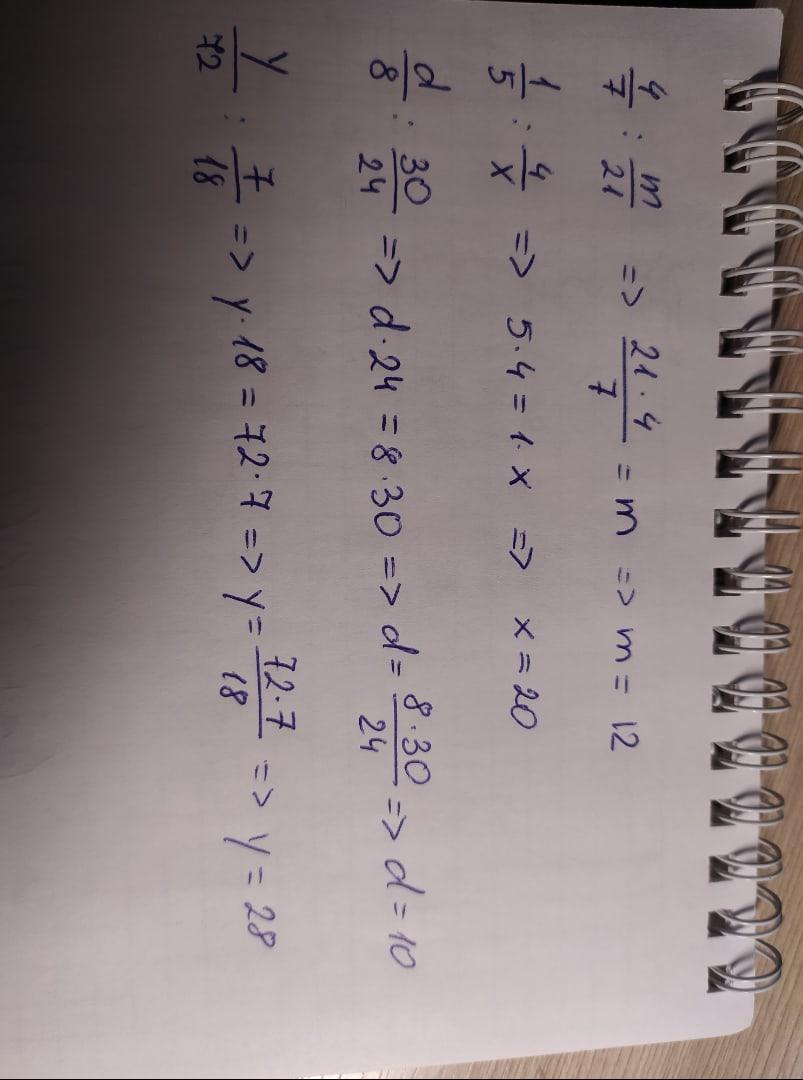 4/7 : m/21 => 21·4/7 = m => m = 12
1/5 : 4/x => 5·4 = 1·x => x = 20
d/8 : 30/24 => d·24 = 8·30 => d = 8·30/24 => d = 10
y/72 : 7/18 => y·18 = 72·7 => y = 72·7/18 => y = 28